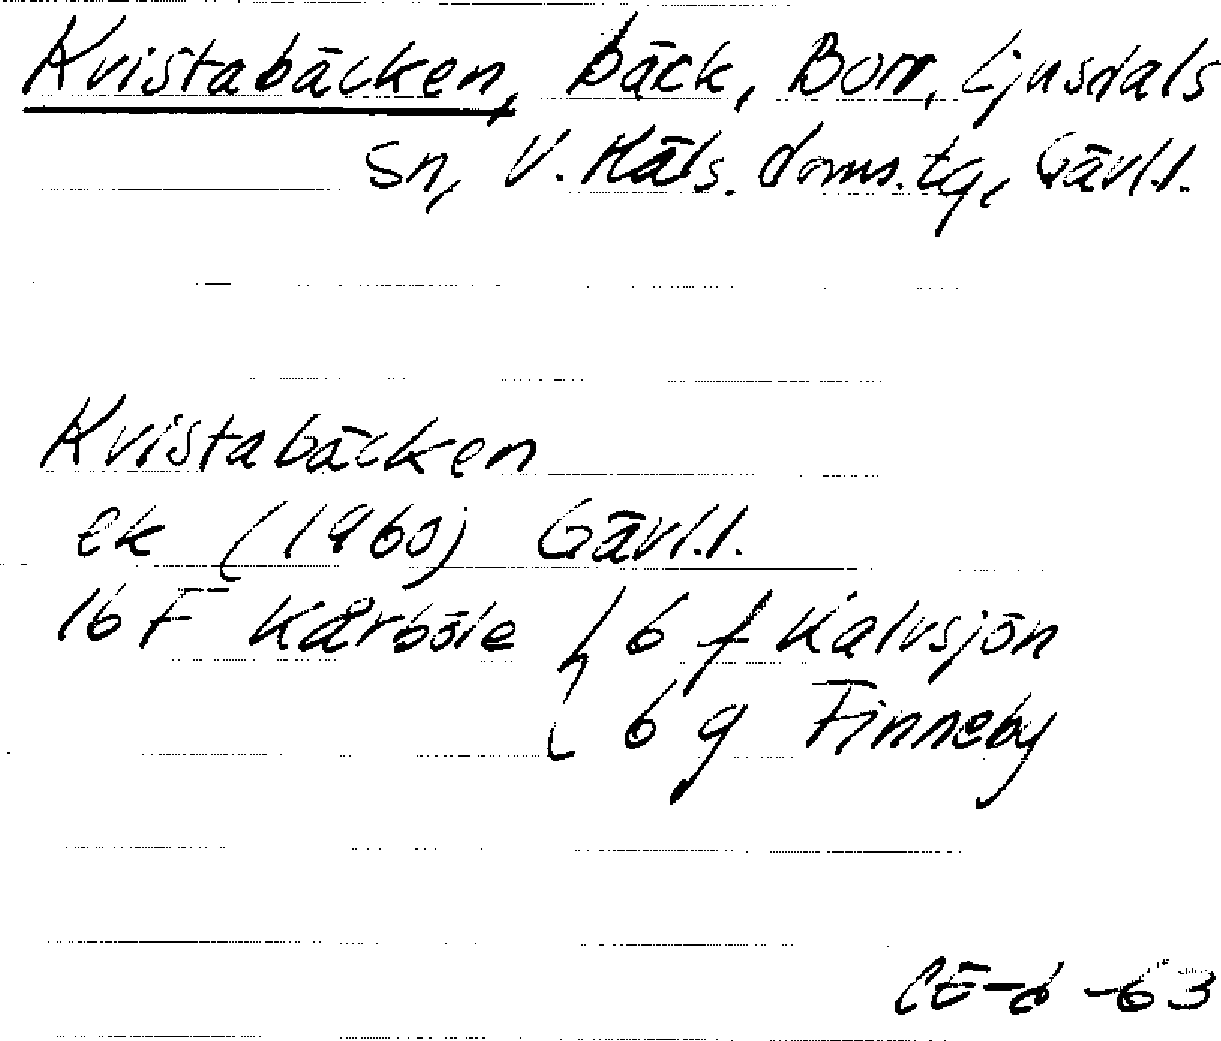 Kvistabäcken, bäck, Borr, Ljusdals
Sn, V. Häls. doms. tg, Gävl.l.
Kvistabäcken
ek (1960) Gävl.l.
16 F Kårböle { 6 f Kalvsjön
6 g Finneby
-63